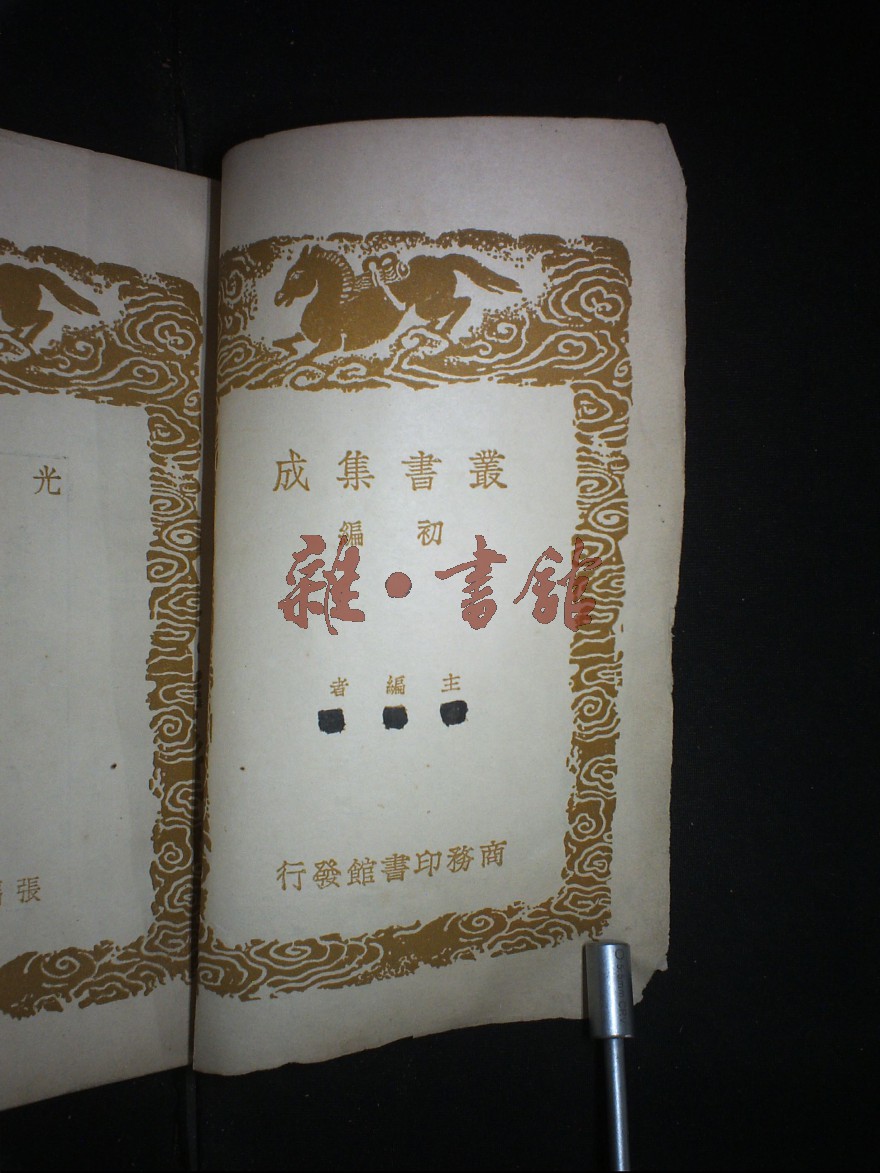 叢書集成
初編
雜·書館
主編者
商務印書館發行
光
張